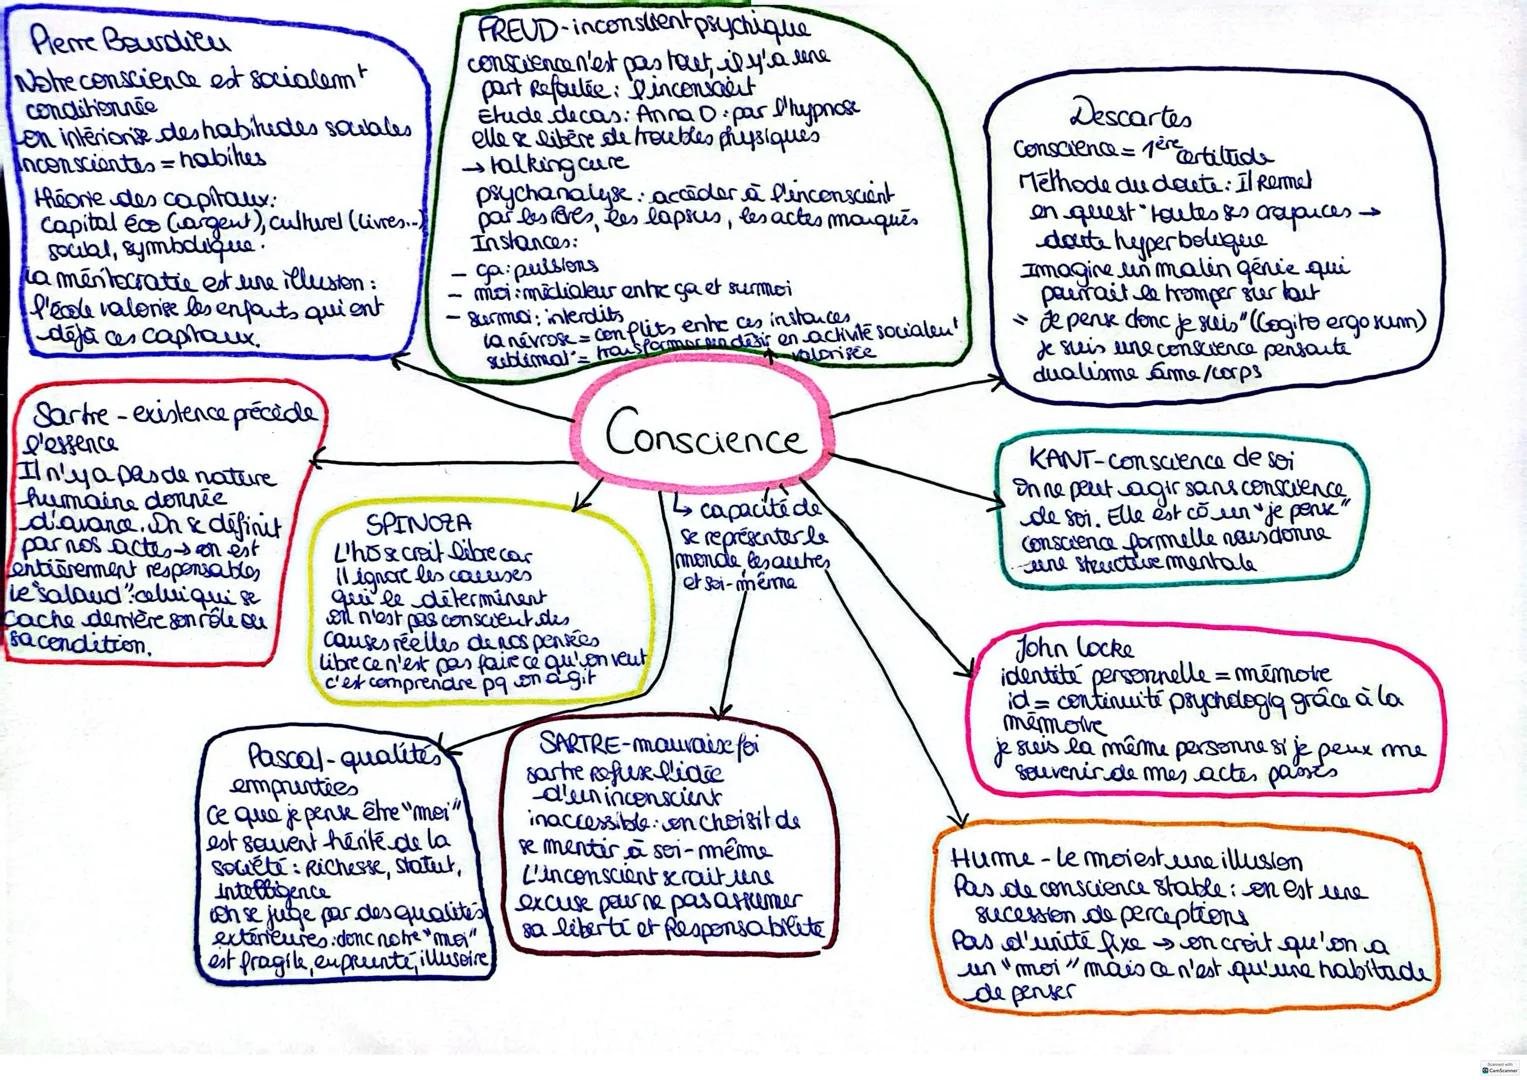 Pierre Bourdieu
Notre conscience est socialemt
conditionnée
on intériorise des habitudes sociales
inconscientes = habitus
théorie des capitaux:
capital éco (argent), culturel (livres...)
social, symbolique.
la méritocratie est une illusion :
l'école valorise les enfants qui ont
déjà ces capitaux.
FREUD - inconscient psychique
conscience n'est pas tout, il y'a une
part refoulée : l'inconscient
Etude de cas : Anna O : par l'hypnose
elle se libère de troubles physiques
→ talking cure
psychanalyse : accéder à l'inconscient
par les rêves, les lapsus, les actes manqués
Instances :
- ça : pulsions
- moi : médiateur entre ça et surmoi
- surmoi : interdits
la névrose = conflits entre ces instances
sublimat° = transformer un désir en activité socialemt
valorisée
Descartes
Conscience = 1ère certitude
Méthode du doute : Il remet
en quest° toutes ses croyances →
doute hyperbolique
Imagine un malin génie qui
pourrait le tromper sur tout
"je pense donc je suis" (Cogito ergo sum)
je suis une conscience pensante
dualisme âme/corps
Conscience
↳ capacité de
se représenter le
monde les autres
et soi-même
Sartre - existence précède
l'essence
Il n'y a pas de nature
humaine donnée
d'avance. On se définit
par nos actes → on est
entièrement responsables
Le "salaud" : celui qui se
cache derrière son rôle ou
sa condition.
SPINOZA
L'hō se croit libre car
il ignore les causes
qui le déterminent
on n'est pas conscient des
causes réelles de nos pensées
libre ce n'est pas faire ce qu'on veut
c'est comprendre pq on agit
KANT - conscience de soi
On ne peut agir sans conscience
de soi. Elle est cō un "je pense"
conscience formelle nous donne
une structure mentale
John Locke
identité personnelle = mémoire
id = continuité psychologiq grâce à la
mémoire
je suis la même personne si je peux me
souvenir de mes actes passés
Pascal - qualités
empruntées
ce que je pense être "moi"
est souvent hérité de la
société : richesse, statut,
intelligence
on se juge par des qualités
extérieures : donc notre "moi"
est fragile, emprunté, illusoire
SARTRE - mauvaise foi
sartre refuse l'idée
d'un inconscient
inaccessible : on choisit de
se mentir à soi-même
L'inconscient serait une
excuse pour ne pas assumer
sa liberté et Responsabilité
Hume - Le moi est une illusion
Pas de conscience stable : on est une
sucession de perceptions
Pas d'unité fixe → on croit qu'on a
un "moi" mais ce n'est qu'une habitude
de penser
Scanned with
CamScanner